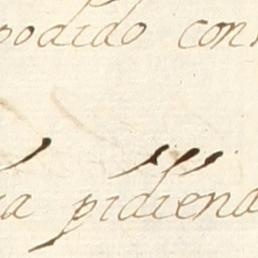 podido con
a pidiend